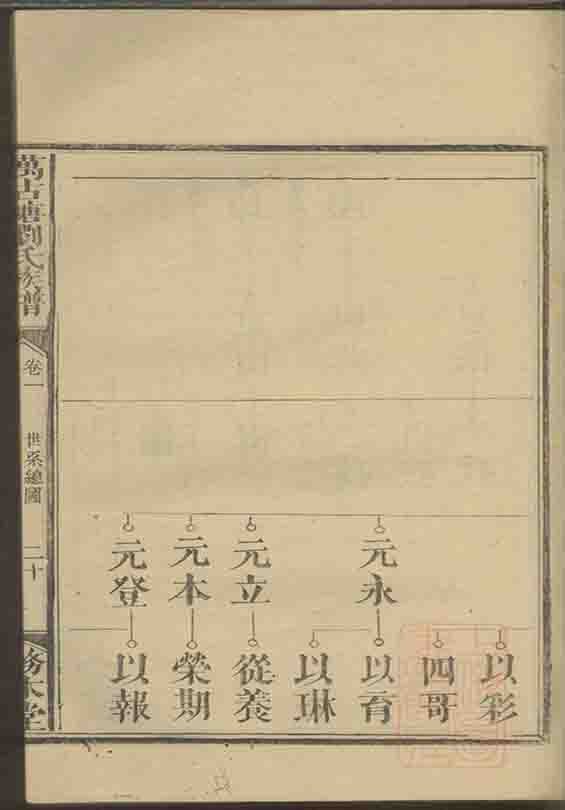 元永
元立
元本
元登
以彩
四哥
以育
以琳
從養
榮期
以報
萬古塘劉氏族譜
卷一
世系總圖
二十
務本堂